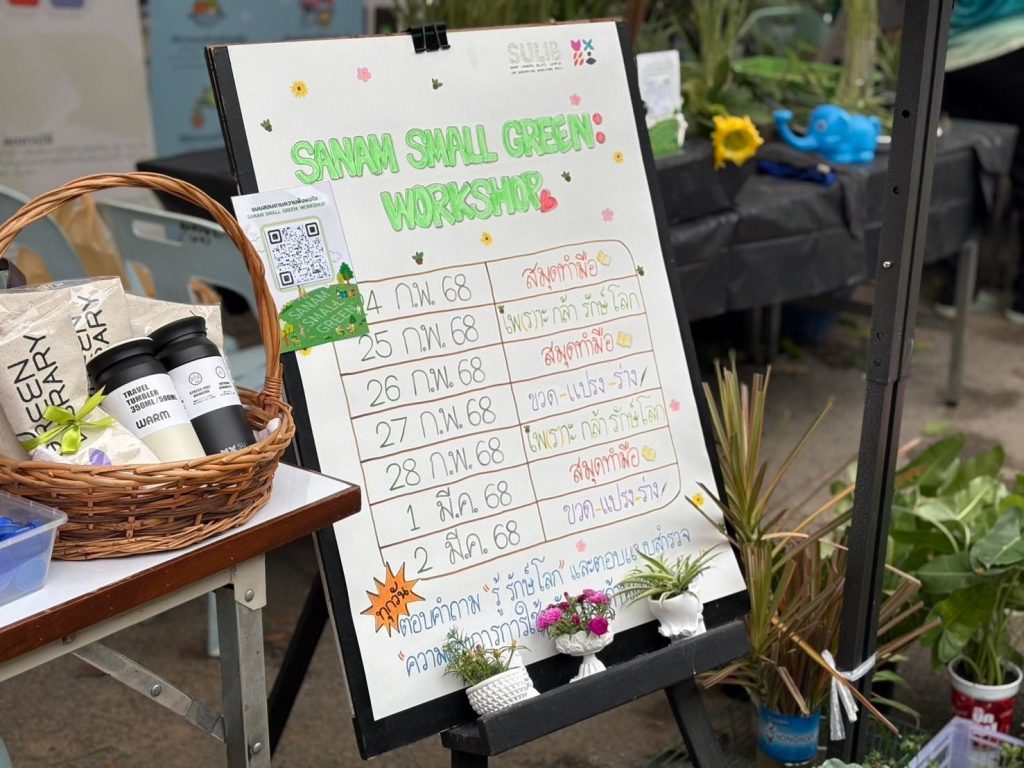 SULIB
SANAM SMALL GREEN
WORKSHOP
แบบสอบถามความพึงพอใจ
SANAM SMALL GREEN WORKSHOP
SANAM
SMALL
GREEN
24 ก.พ. 68 สมุดทำมือ
25 ก.พ. 68 เพราะ กล้า รักษ์ โลก
26 ก.พ. 68 สมุดทำมือ
27 ก.พ. 68 ขวด-แปรง-ร่าง
28 ก.พ. 68 เพราะ กล้า รักษ์ โลก
1 มี.ค. 68 สมุดทำมือ
2 มี.ค. 68 ขวด-แปรง-ร่าง
ทุกวัน
ตอบคำถาม "รู้ รักษ์โลก" และตอบแบบสำรวจ
GREEN
LIBRARY
TRAVEL
TUMBLER
350ML/500ML
WARM